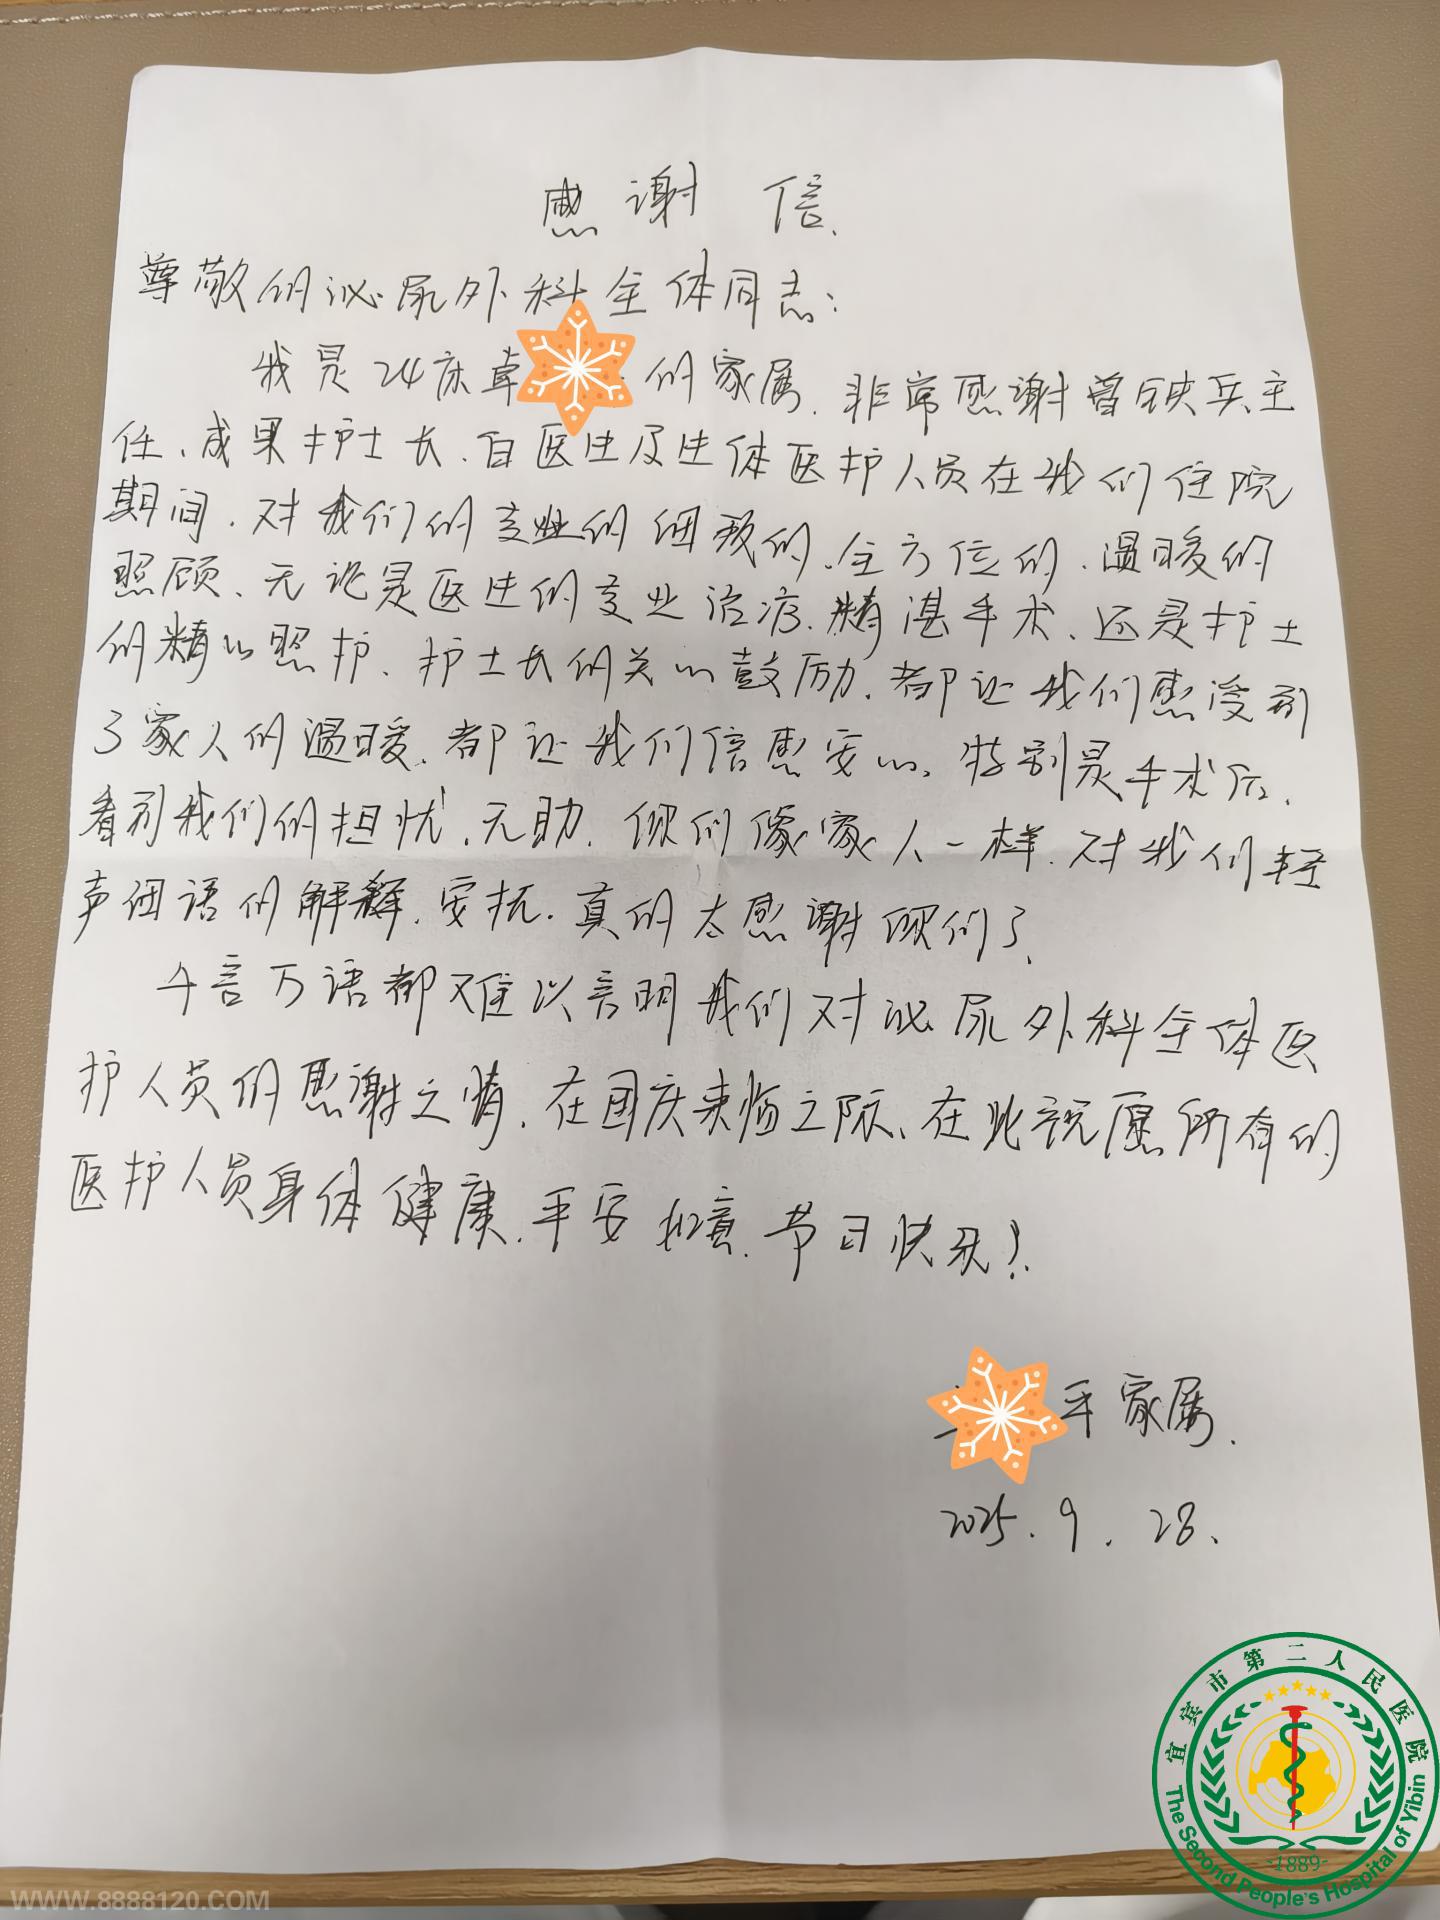 感谢信.
尊敬的泌尿外科全体同志:
我是24床卓 的家属.非常感谢曾铁兵主
任、成果护士长.白医生及全体医护人员在我们住院
期间.对我们的专业的细致的.全方位的.温暖的
照顾、无论是医生的专业治疗.精湛手术、还是护士
的精心照护.护士长的关心鼓励.都让我们感受到
了家人的温暖.都让我们倍感安心、特别是手术后.
看到我们的担忧.无助.你们像家人一样.对我们轻
声细语的解释.安抚.真的太感谢你们了.
千言万语都难以言明我们对泌尿外科全体医
护人员的感谢之情.在国庆来临之际、在此祝愿所有的
医护人员身体健康.平安如意.节日快乐!
平家属.
2025.9.28.
宜宾市第二人民医院
The Second People's Hospital of Yibin
-1889-
WWW.8888120.COM